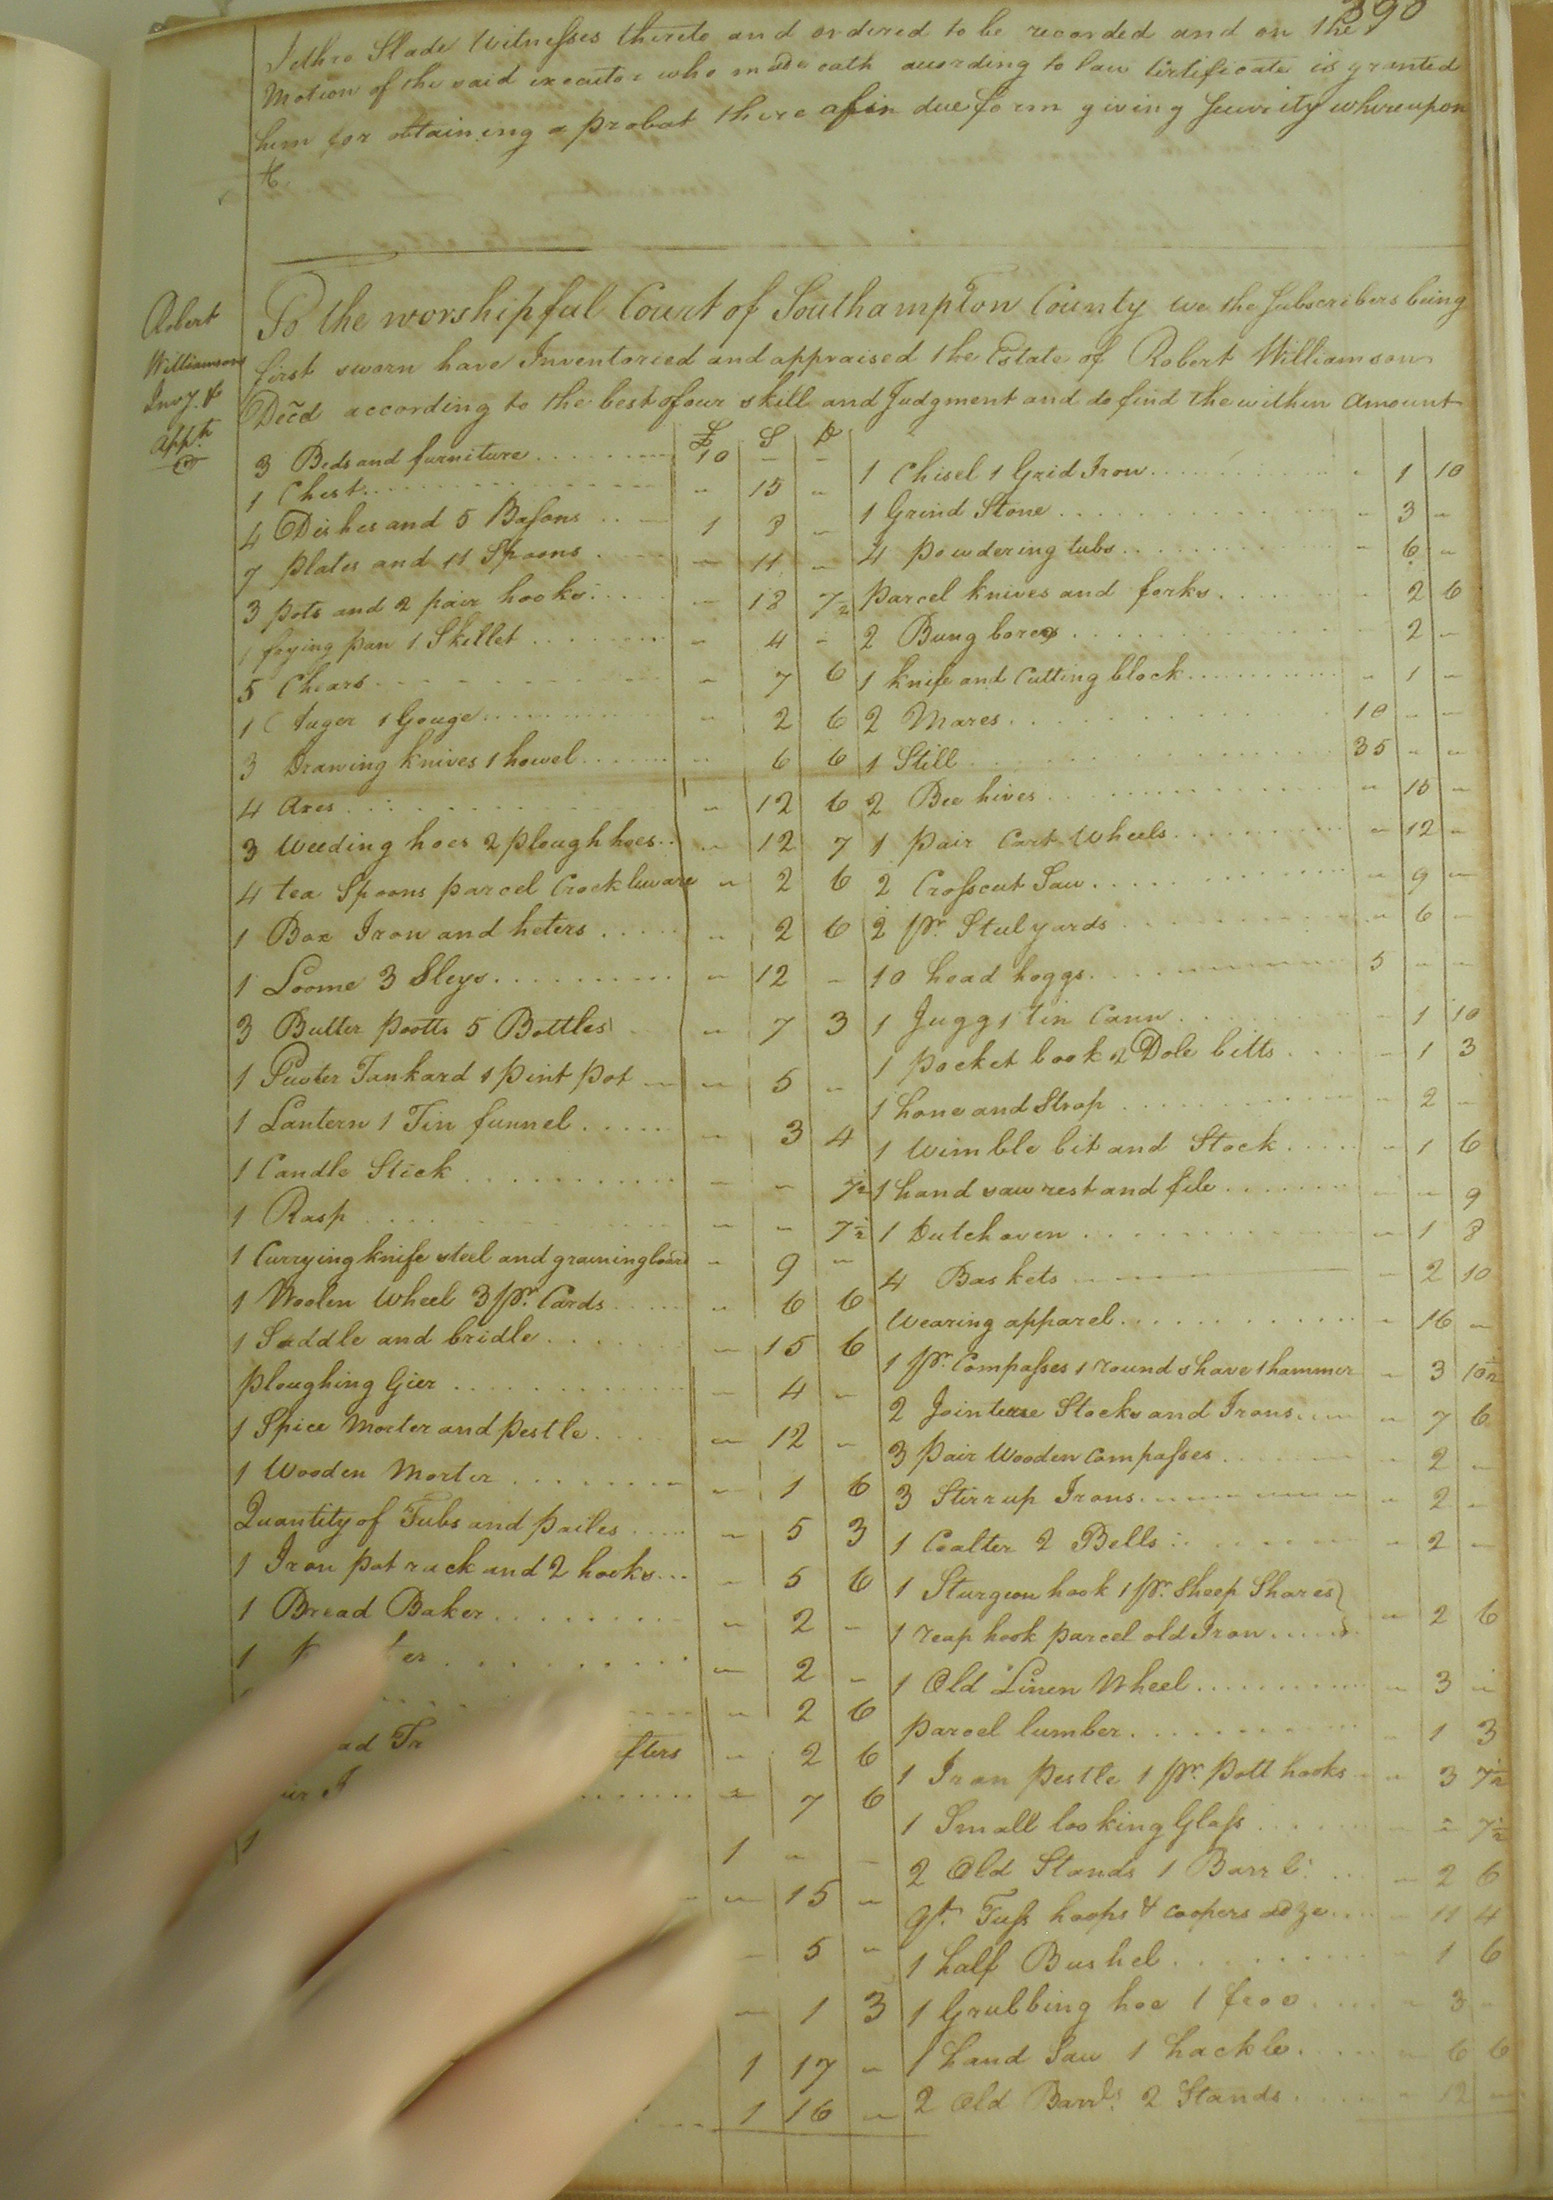 390
Jethro Slade Witnesses thereto and ordered to be recorded and on the
Motion of the said executor who made oath according to law Certificate is granted
him for obtaining a probat there of in due form giving Security whereupon
&c.
Robert
Williamsons
Invy. &
Appt.
To the worshipful Court of Southampton County we the Subscribers being
first sworn have Inventoried and appraised the Estate of Robert Williamson
Decd according to the best of our skill and Judgment and do find the within Amount
£ S D
3 Beds and furniture 10 - -
1 Chest - 15 -
4 Dishes and 5 Basons 1 8 -
7 plates and 11 Spoons - 11 -
3 pots and 2 pair hooks - 18 7½
1 frying pan 1 Skillet - 4 -
5 Chears - 7 6
1 Auger 1 Gouge - 2 6
3 Drawing knives 1 howel - 6 6
4 Axes - 12 6
3 Weeding hoes 2 plough hoes - 12 7
4 tea Spoons parcel Crockluware - 2 6
1 Box Iron and heters - 2 6
1 Loome 3 Sleys - 12 -
3 Butter pootts 5 Bottles - 7 3
1 Pewter Tankard 1 pint pot - 5 -
1 Lantern 1 Tin funnel - 3 4
1 Candle Stick - - 7½
1 Rasp - - 7½
1 Currying knife steel and graining board - 9 -
1 Woolen Wheel 3 pr. Cards - 6 6
1 Saddle and bridle - 15 6
ploughing Gier - 4 -
1 Spice Morter and pestle - 12 -
1 Wooden Morter - 1 6
Quantity of Tubs and pailes - 5 3
1 Iron pot rack and 2 hooks - 5 6
1 Bread Baker - 2 -
1 - 2 -
- 2 6
- 2 6
- 7 6
1 1 - -
- 15 -
- 5 -
- 1 3
1 17 -
1 16 -
1 Chisel 1 Grid Iron - 1 10
1 Grind Stone - 3 -
4 powdering tubs - 6 -
parcel knives and forks - 2 6
2 Bung borers 2 -
1 knife and Cutting block - 1 -
2 Mares 10 - -
1 Still 35 - -
2 Bee hives - 15 -
1 pair Cart Wheels - 12 -
2 Crosscut Saw - 9 -
2 pr. Stulyards - 6 -
10 head hoggs 5 - -
1 Jugg 1 tin Cann - 1 10
1 pocket book 2 Dole bitts - 1 3
1 hone and Strop - 2 -
1 Wimble bit and Stock - 1 6
1 hand saw rest and file - - 9
1 Dutch oven - 1 8
4 Baskets - 2 10
Wearing apparel - 16 -
1 pr. Compasses 1 round shave 1 hammer - 3 10½
2 Jointure Stocks and Irons - 7 6
3 pair Wooden Compasses - 2 -
3 Stirrup Irons - 2 -
1 Coalter 2 Bells - 2 -
1 Sturgeon hook 1 pr. Sheep Shares
1 reap hook parcel old Iron - 2 6
1 Old Linen Wheel - 3 -
parcel lumber - 1 3
1 Iron pestle 1 pr. pott hooks - 3 7½
1 Small looking Glass - - 7½
2 Old Stands 1 Barrl. - 2 6
qt. Tuss hoops & coopers adze - 11 4
1 half Bushel - 1 6
1 Grubbing hoe 1 froe - 3 -
1 hand Saw 1 hackle - 6 6
2 Old Barrls. 2 Stands - 12 -